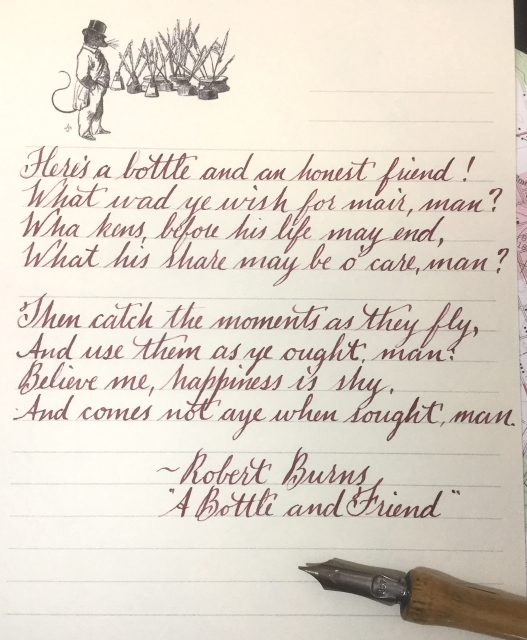 Here's a bottle and an honest friend!
What wad ye wish for mair, man?
Wha kens, before his life may end,
What his share may be o' care, man?
Then catch the moments as they fly,
And use them as ye ought, man:
Believe me, happiness is shy,
And comes not aye when sought, man.
~Robert Burns,
"A Bottle and Friend"